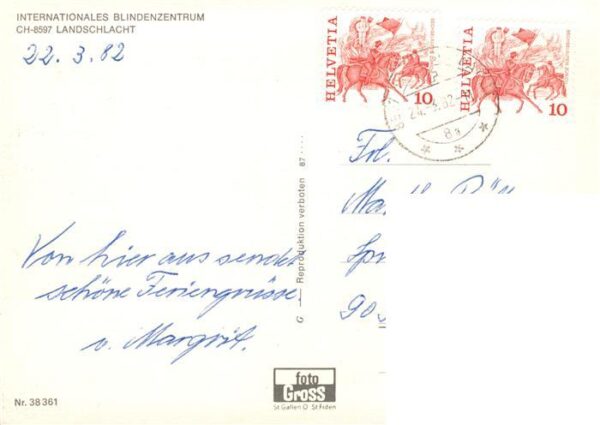 INTERNATIONALES BLINDENZENTRUM
CH-8597 LANDSCHLACHT
22. 3. 82
Von hier aus sendet
schöne Feriengrüsse
v. Margrit.
Nr. 38 361
G Reproduktion verboten 87 ....
foto
Gross
St.Gallen O St.Fiden
HELVETIA
10
HELVETIA
10
8a
Frl.
90